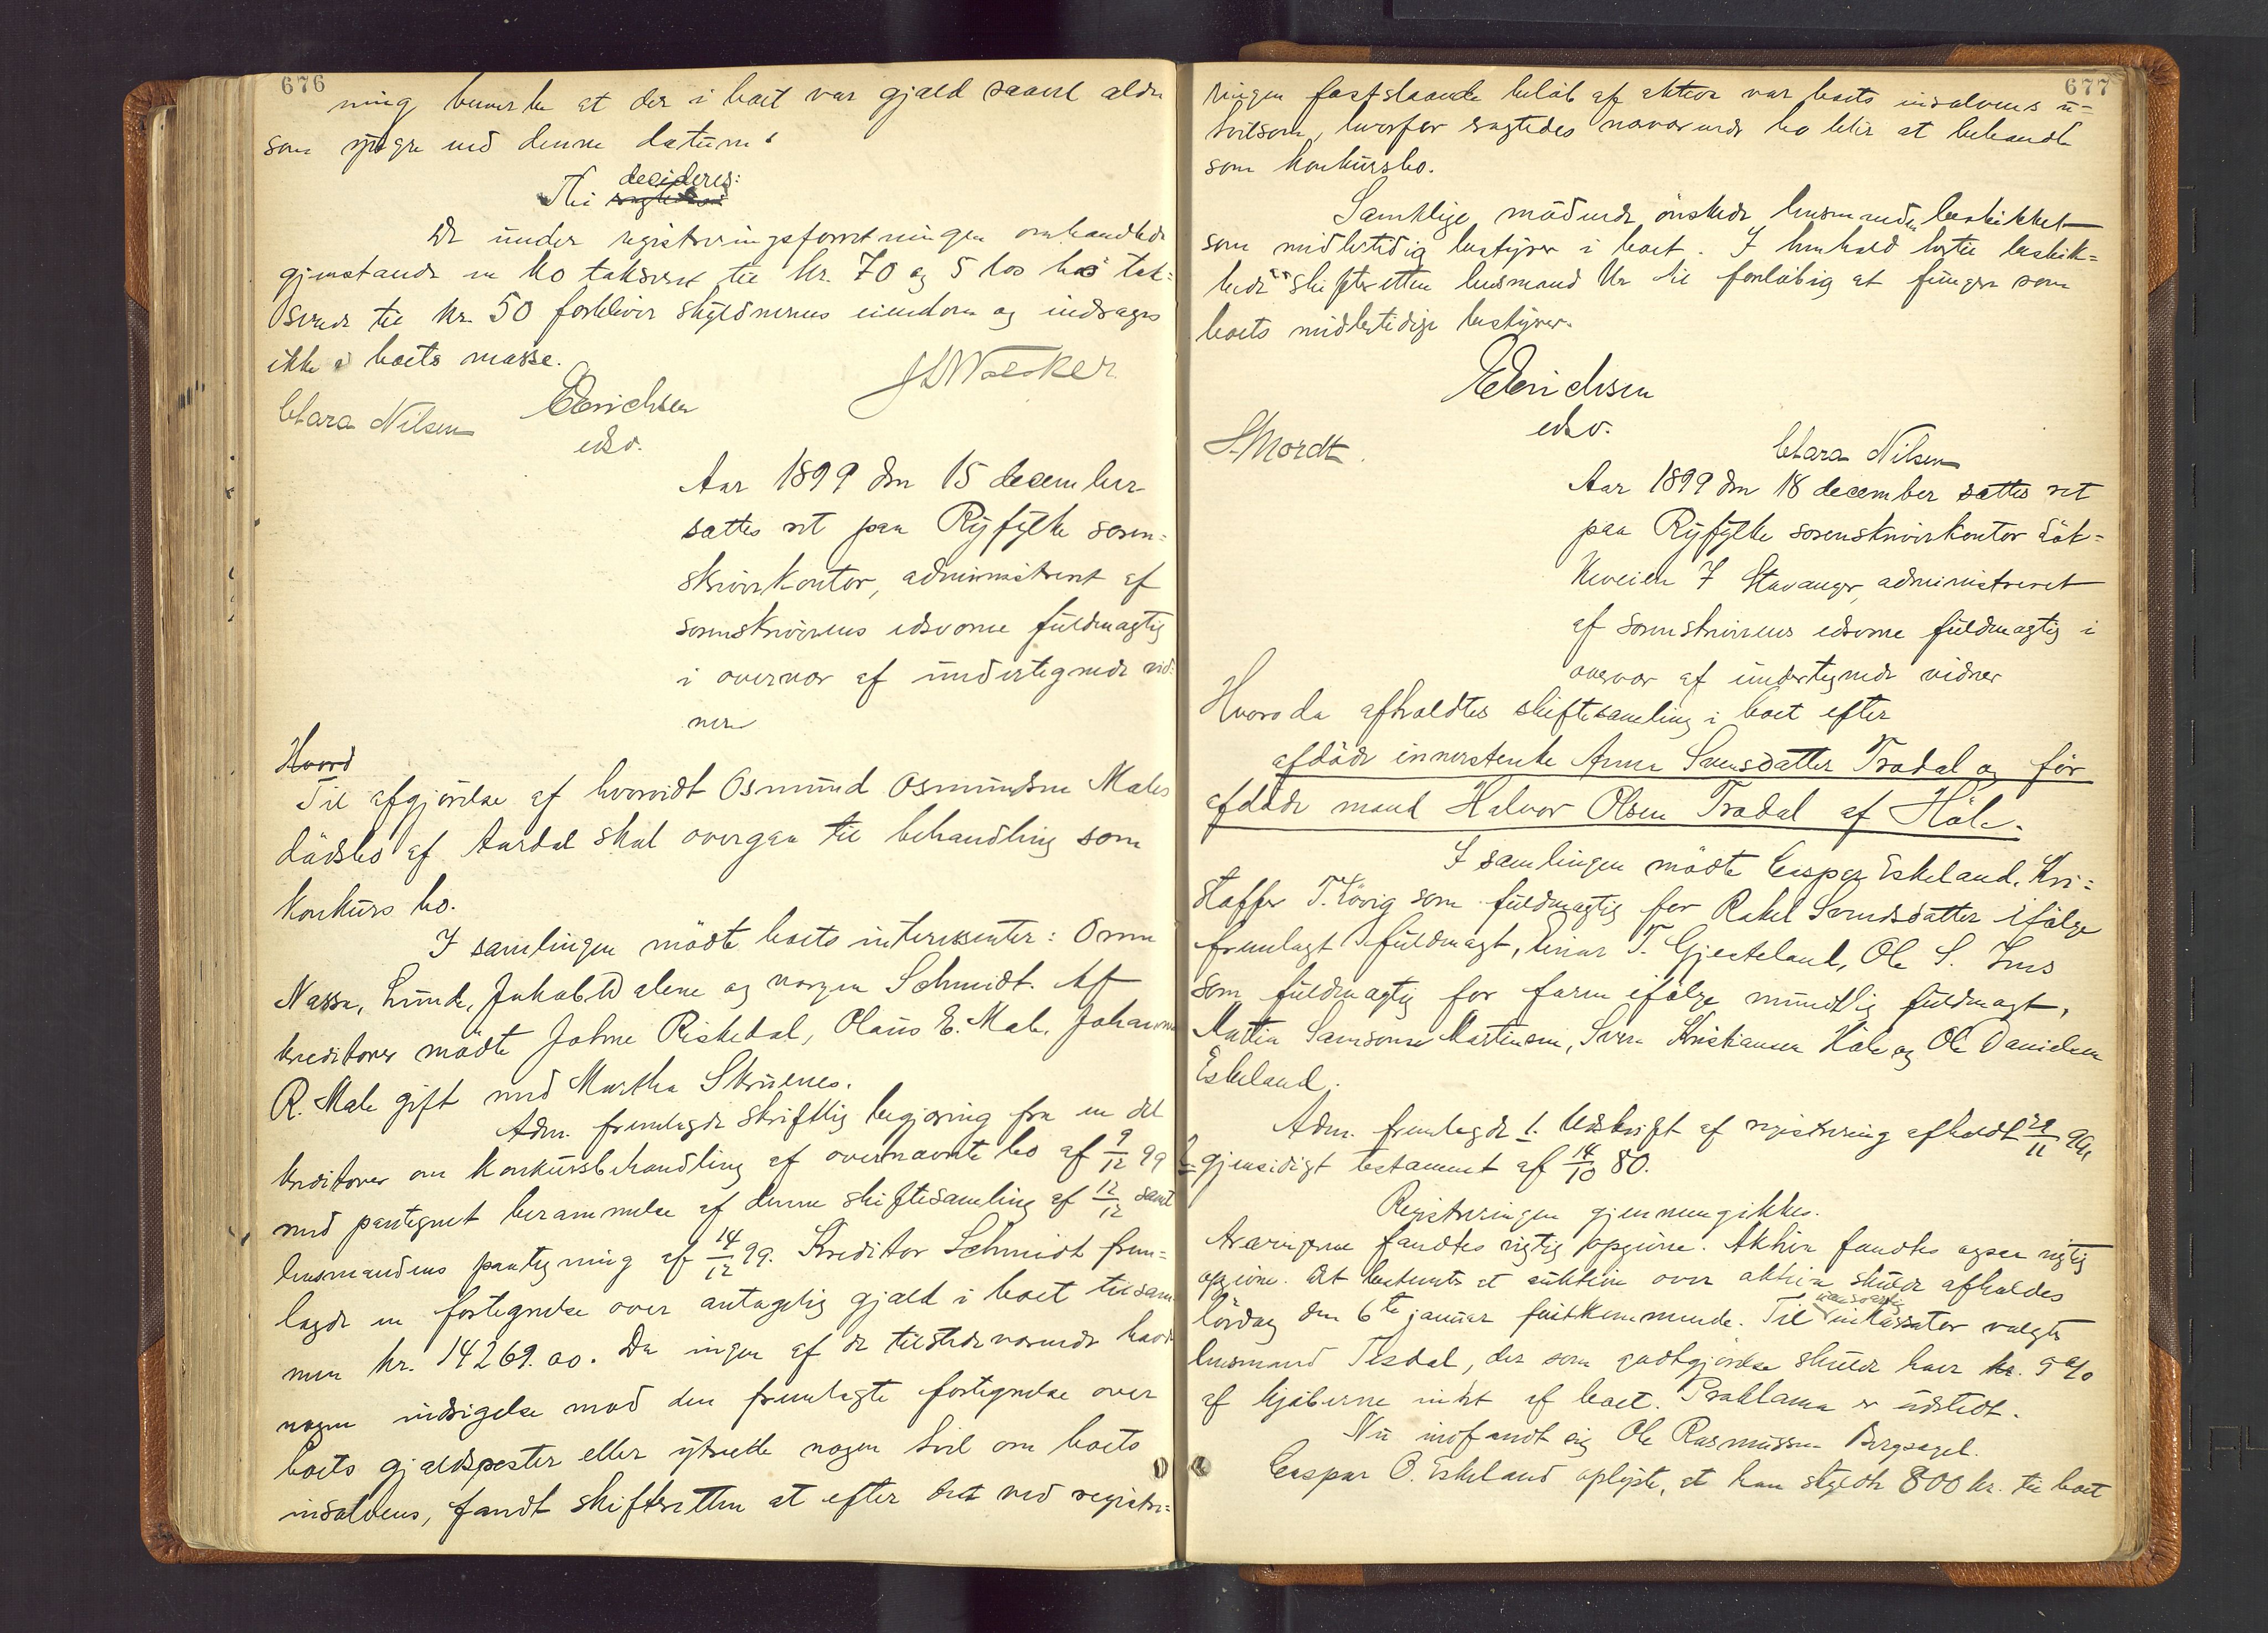 676
ning bemerke at der i boet var gjæld saavel ældre
som yngre end denne datum.
Thi decideres:
De under registreringsforretningen omhandlede
gjenstande en ko takseret til kr. 70 og 5 las hø tak=
serede til kr. 50 forbliver skyldnerens eiendom og inddrages
ikke i boets masse.
Clara Nilsen
EErichsen
edsv.
Aar 1899 den 15 december
sattes ret paa Ryfylke soren=
skriverkontor, administreret af
sorenskriverens edsvorne fuldmægtig
i overvær af undertegnede vid=
ner
Hvord
Til afgjørelse af hvorvidt Osmund Osmundsen Males
dødsbo af Aardal skal overgaa til behandling som
konkurs bo.
I samlingen mødte boets interessenter:
Næssa, Lunde, Jakob og værgen Schmidt. Af
kreditorer mødte Johne Riskedal, Olaus E. Male, Johanne
R. Male gift med Martha Skruenes.
Adm. fremlagde skriftlig begjæring fra en del
kreditorer om konkursbehandling af ovennævnte bo af 9/12 99
med paategnet berammelse af denne skiftesamling af 12/12 samt
lensmandens paategning af 14/12 99. Kreditor Schmidt frem=
lagde en fortegnelse over antagelig gjæld i boet tilsam
men kr. 14269.00. Da ingen af de tilstedeværende havde
nogen indsigelse mod den fremlagte fortegnelse over
boets gjældsposter eller ytrede nogen tvil om boets
insolvens, fandt skifteretten at efter det ved registre=
677
ringen fastslaaede beløb af aktiva var boets insolvens u=
tvilsom, hvorfor vedtoges nærværende bo blir at behandle
som konkursbo.
Samtlige mødende ønskede lensmanden beskikket
som midlertidig bestyrer i boet. I henhold hertil beskik=
kede skifteretten lensmand til foreløbig at fungere som
boets midlertidige bestyrer.
EErichsen
edsv.
Clara Nilsen
Aar 1899 den 18 december sattes ret
paa Ryfylke sorenskriverkontor Løk=
keveien 7 Stavanger, administreret
af sorenskriverens edsvorne fuldmægtig i
overvær af undertegnede vidner
Hvorda afholdtes skiftesamling i boet efter
afdøde innerstenke Anna Svensdatter Trodal og før
afdøde mand Halvor Olsen Trodal af Høle.
I samlingen mødte Casper Eskeland, Kri=
stoffer T. som fuldmægtig for Rakel Svendsdatter ifølge
fremlagt fuldmagt, Einar T. Gjesteland, Ole S. Ims
som fuldmægtig for faren ifølge mundtlig fuldmagt,
Martin Samsonsen Martinsen, Sven Kristiansen Høle og Ole Danielsen
Eskeland.
Adm. fremlagde 1. Udskrift af registrering afholdt 29/11 99,
2. gjensidigt testament af 14/10 80.
Registreringen gjennemgikkes.
Arvingerne fandtes rigtig opgivne. Aktiva fandtes ogsaa rigtig
opgivne. Det bestemtes at auktion over aktiva skulde afholdes
lørdag den 6te januar førstkommende. Til ansvarlig inkassator valgtes
lensmand Tesdal, der som godtgjørelse skulde have kr. 5 %
af kjøberne intet af boet. Proklama er udstedt.
Nu indfandt sig Ole Rasmussen Bergsagel.
Caspar O. Eskeland oplyste, at han skyldte 800 kr. til boet